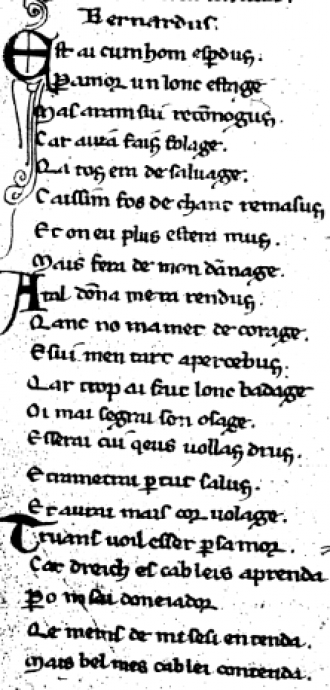 Bernardus.
Est ai cum hom esp̄dus.
P amor un lonc estage
Mas aram sui recōnogus.
Car auia faih folage.
Qa toz era de saluage.
Caissim fos de chant remasus
Et on eu plus estera mus.
Mais fera de mon dānage.
A tal dōna mera rendus.
Qanc no mamet de corage.
E sui men tart apercebus.
Qar trop ai fait lonc badage
Oi mai segrai son usage.
E serai cui qeus uollas drus.
E trametrai p tut salus.
Et aurai mais cor uolage.
Truans uoil esser p samor.
Car dreich es cab leis aprenda
Po no sai doneiador
Qe meins de mi sesi entenda.
Mais bel mes cab lei contenda.